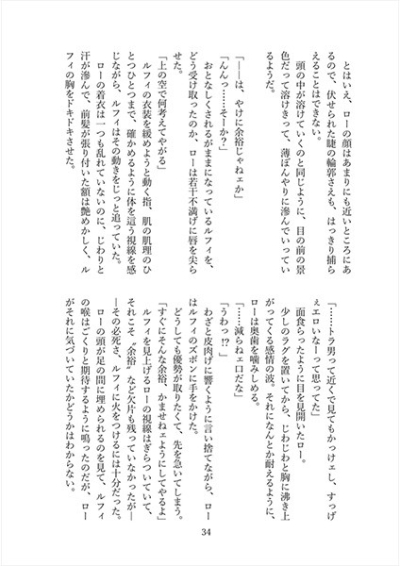 とはいえ、ローの顔はあまりにも近いところにあ
るので、伏せられた睫の輪郭さえも、はっきり捕ら
えることはできない。
頭の中が溶けていくのと同じように、目の前の景
色だって溶けきって、薄ぼんやりに滲んでいってい
るようだ。
「――は、やけに余裕じゃねェか」
「んんっ……そーか？」
おとなしくされるがままになっているルフィを、
どう受け取ったのか、ローは若干不満げに唇を尖ら
せた。
「上の空で何考えてやがる」
ルフィの衣装を緩めようと動く指、肌の肌理のひ
とつひとつまで、確かめるように体を這う視線を感
じながら、ルフィはその動きをじっと追っていた。
ローの着衣は一つも乱れていないのに、じわりと
汗が滲んで、前髪が張り付いた額は艶めかしく、ル
フィの胸をドキドキさせた。
「……トラ男って近くで見てもかっけェし、すっげ
ェエロいなーって思ってた」
面食らったように目を見開いたロー。
少しのラグを置いてから、じわじわと胸に沸き上
がってくる感情の波。それになんとか耐えるように、
ローは奥歯を噛みしめる。
「……減らねェ口だな」
「うわっ!?」
わざと皮肉げに響くように言い捨てながら、ロー
はルフィのズボンに手をかけた。
どうしても優勢が取りたくて、先を急いてしまう。
「すぐにそんな余裕、かませねェようにしてやるよ」
ルフィを見上げるローの視線はぎらついていて、
それこそ〝余裕〟など欠片も残っていなかったが―
―その必死さ、ルフィに火をつけるには十分だった。
ローの頭が足の間に埋められるのを見て、ルフィ
の喉はごくりと期待するように鳴ったのだが、ロー
がそれに気づいていたかどうかはわからない。
34